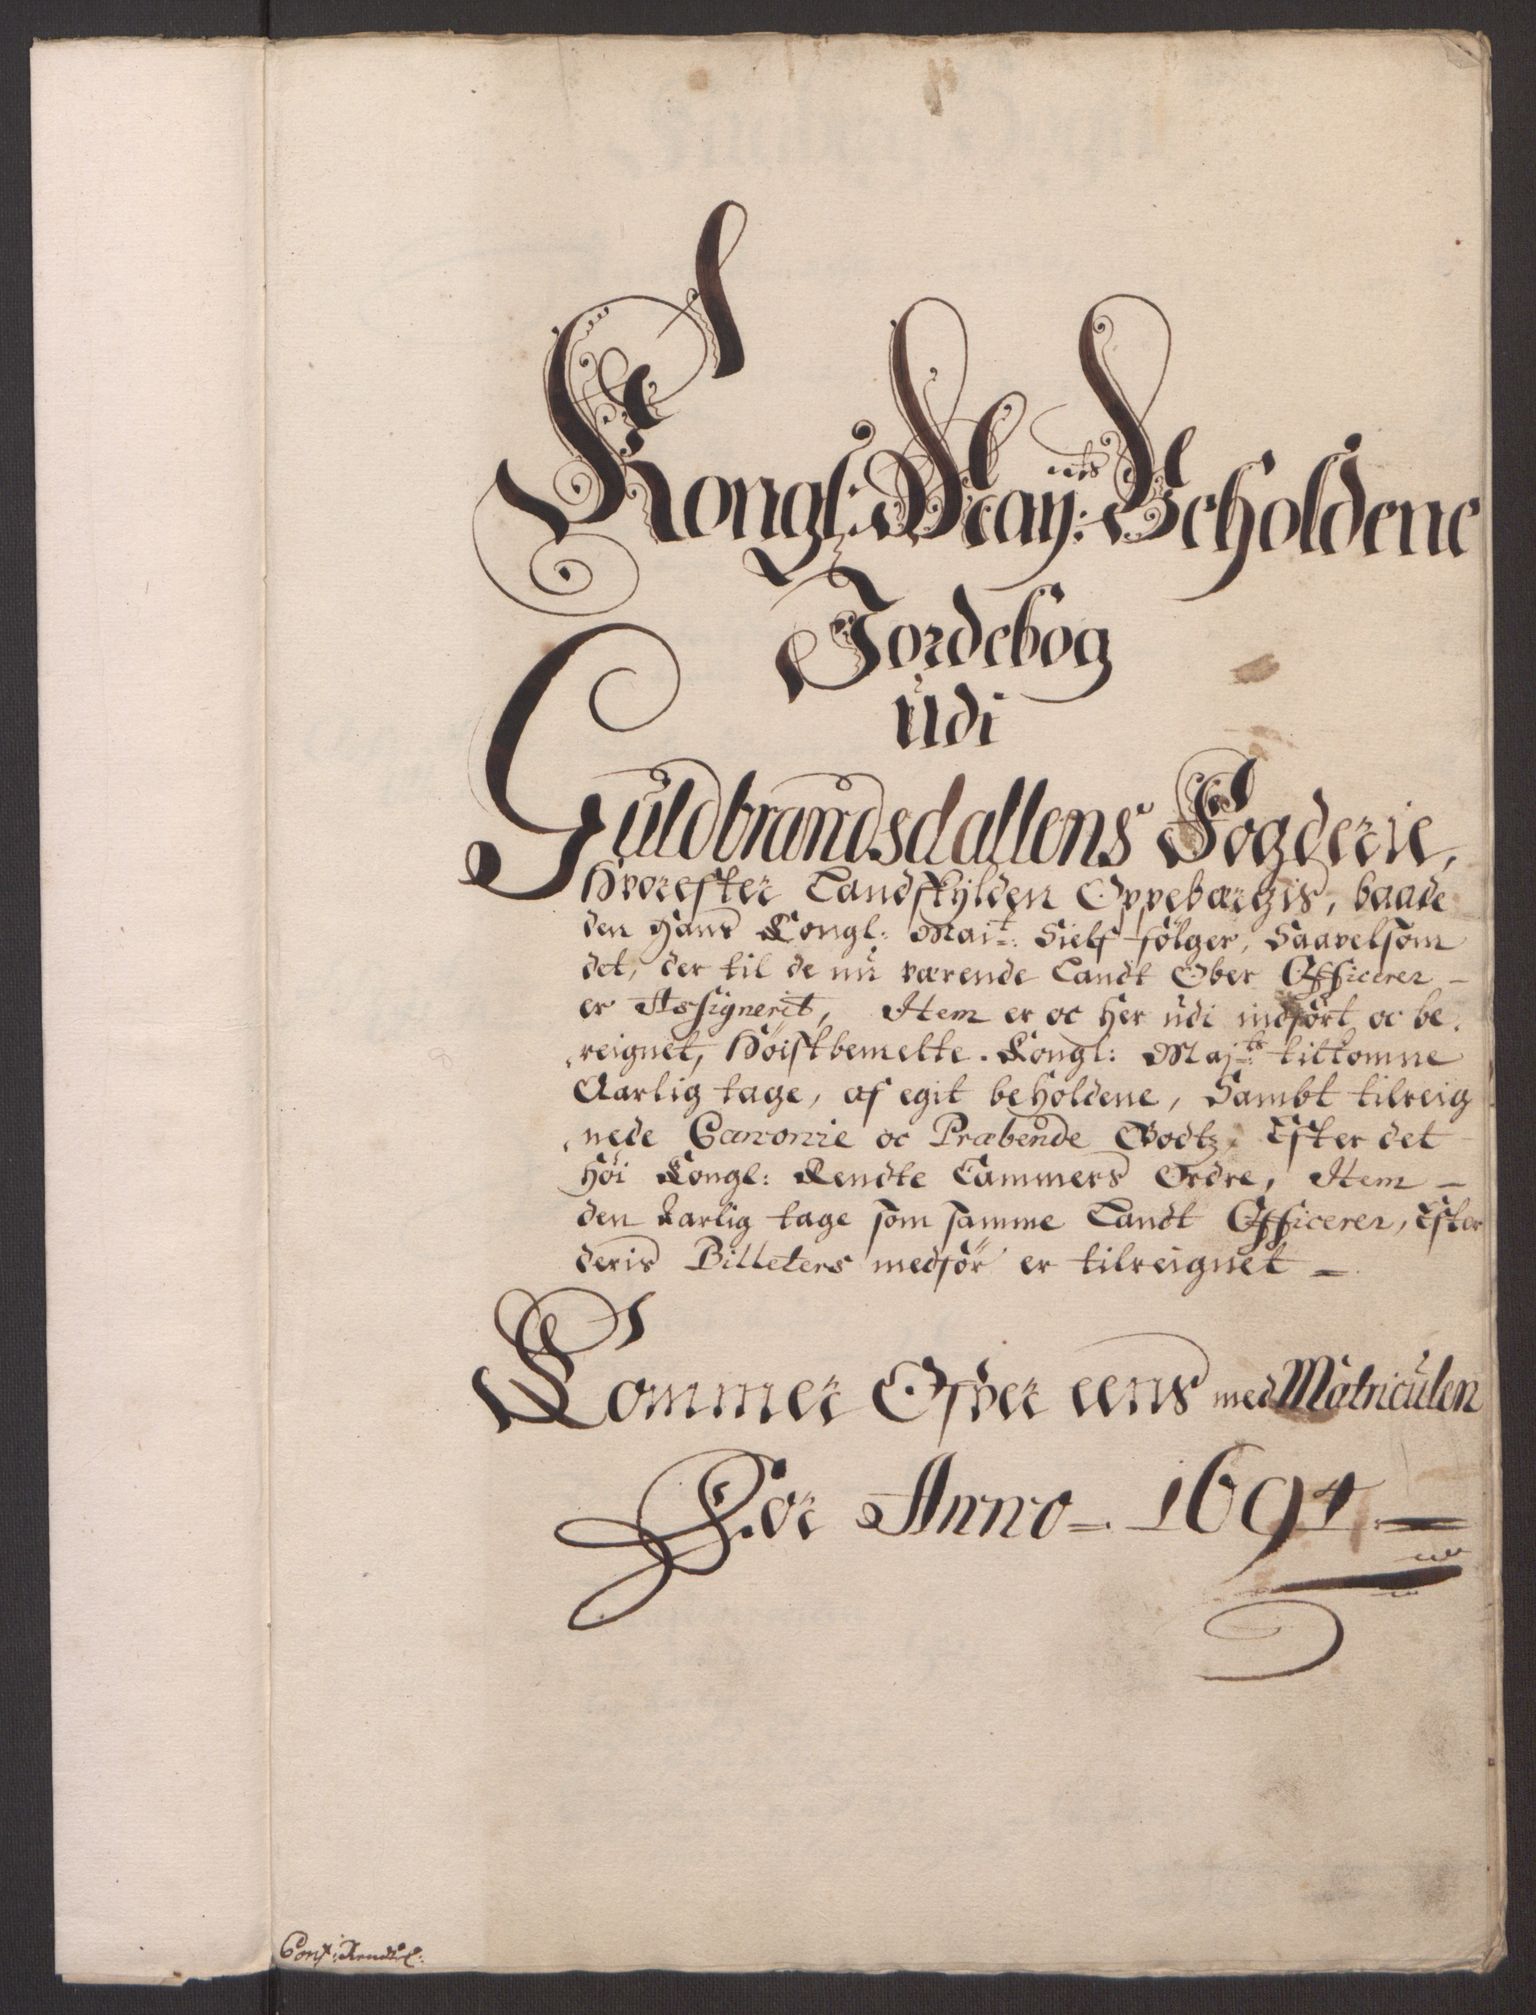 Kongl: May:tts Beholdene
Jordebog
udi
Guldbrandsdallens Fogderie,
Hvorefter Landskylden Oppebærgis, baade
den Hans Kongl: Mait: Sielf følger, Saavelsom
det, der til de nu værende Landt Ober Officerer –
er Assignerit, Item er oc her udi indført oc be,
reignet, Høistbemelte Kongl: Majts: tilkomne
Aarlig tage, af egit beholdene, Sambt tilreig
,nede Canonie oc Præbende Godtz, Efter det
Høi Kongl: Rendte Cammers Ordre, Item –
den Aarlig tage som samme Landt Officerer, Efter
deris Billeters medfør er tilreignet –
Kommer Ofver eens med Matriculen
For Anno – 1694